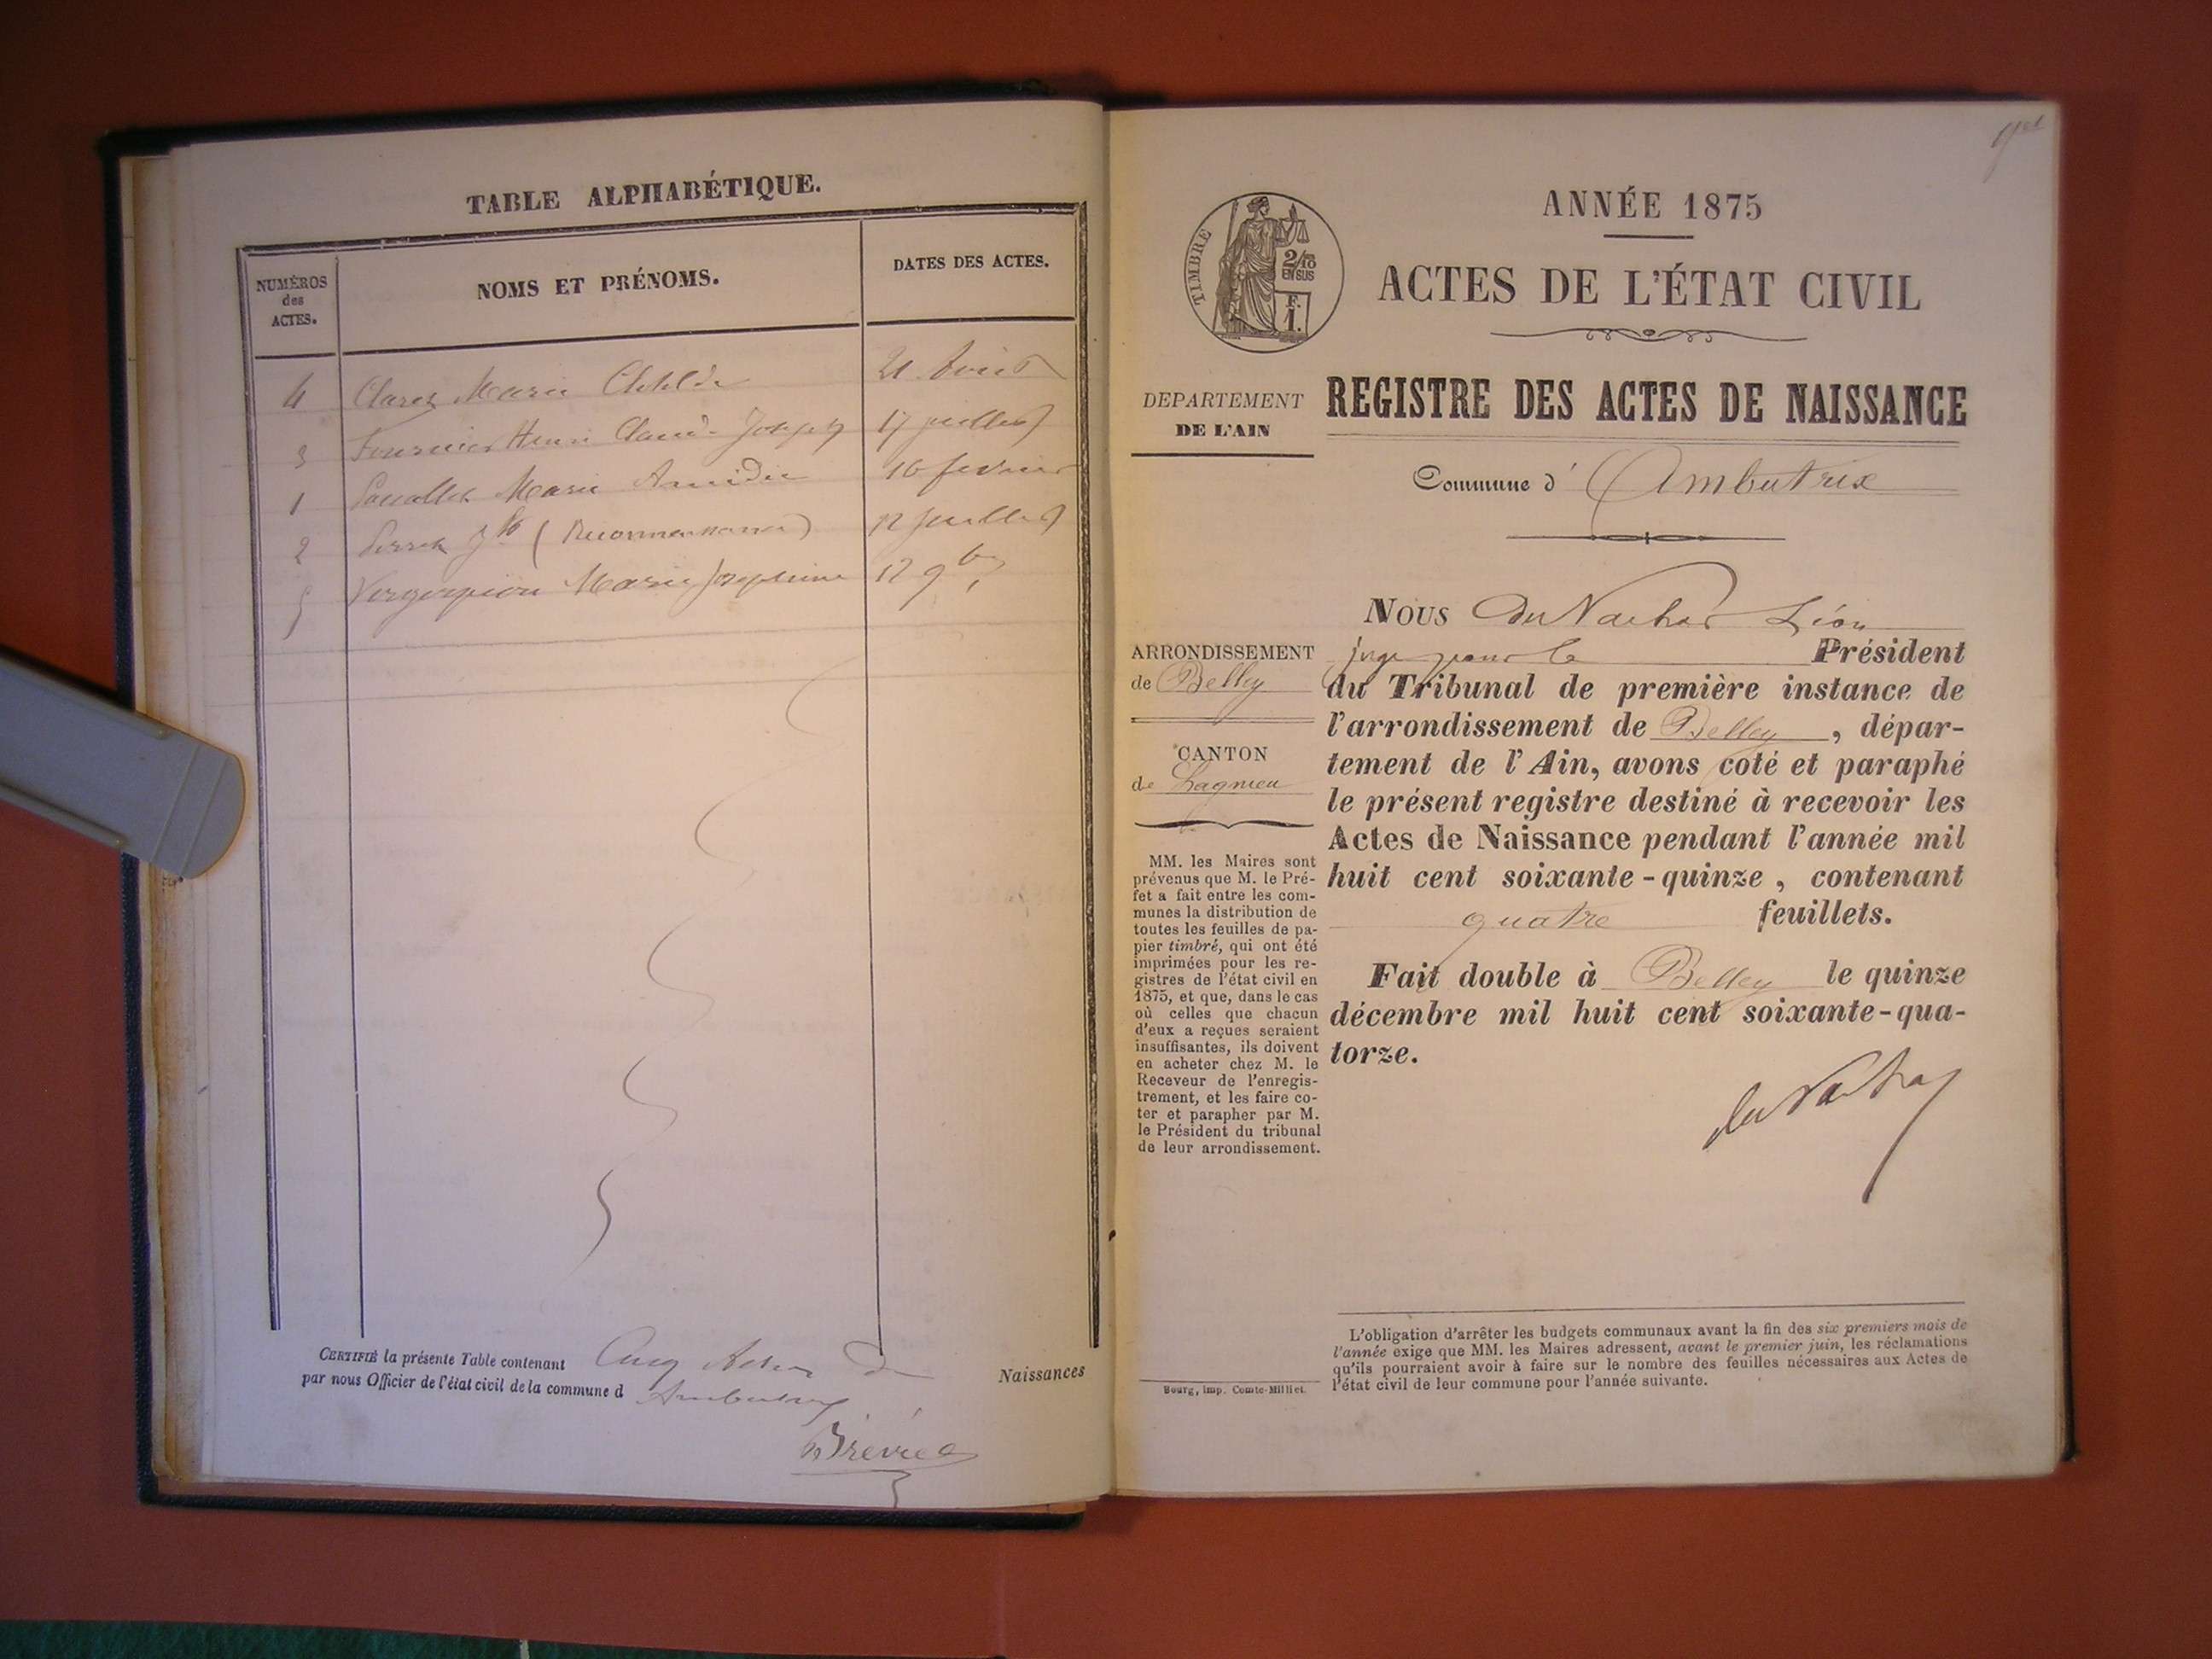 TABLE ALPHABÉTIQUE.
NUMÉROS
des
ACTES.
NOMS ET PRÉNOMS.
DATES DES ACTES.
4 Claret Marie Clotilde
3 Fournier Henri Claude Joseph 17 juillet
1 Marie Amédée 16 février
2 Perret (Reconnaissance) 12 Juillet
5 Marie Josephine 12 9bre
CERTIFIÉ la présente Table contenant Cinq Actes de Naissances
par nous Officier de l'état civil de la commune d Ambutrix
ANNÉE 1875
ACTES DE L'ÉTAT CIVIL
TIMBRE
2/10
EN SUS
F.
1.
DEPARTEMENT
DE L'AIN
REGISTRE DES ACTES DE NAISSANCE
Commune d' Ambutrix
ARRONDISSEMENT
de Belley
CANTON
de Lagnieu
MM. les Maires sont
prévenus que M. le Pré-
fet a fait entre les com-
munes la distribution de
toutes les feuilles de pa-
pier timbré, qui ont été
imprimées pour les re-
gistres de l'état civil en
1875, et que, dans le cas
où celles que chacun
d'eux a reçues seraient
insuffisantes, ils doivent
en acheter chez M. le
Receveur de l'enregis-
trement, et les faire co-
ter et parapher par M.
le Président du tribunal
de leur arrondissement.
Bourg, imp. Comte-Milliet.
NOUS Du Nachat Léon
juge pour le Président
du Tribunal de première instance de
l'arrondissement de Belley, dépar-
tement de l'Ain, avons coté et paraphé
le présent registre destiné à recevoir les
Actes de Naissance pendant l'année mil
huit cent soixante-quinze, contenant
quatre feuillets.
Fait double à Belley le quinze
décembre mil huit cent soixante-qua-
torze.
du Nachat
L'obligation d'arrêter les budgets communaux avant la fin des six premiers mois de
l'année exige que MM. les Maires adressent, avant le premier juin, les réclamations
qu'ils pourraient avoir à faire sur le nombre des feuilles nécessaires aux Actes de
l'état civil de leur commune pour l'année suivante.